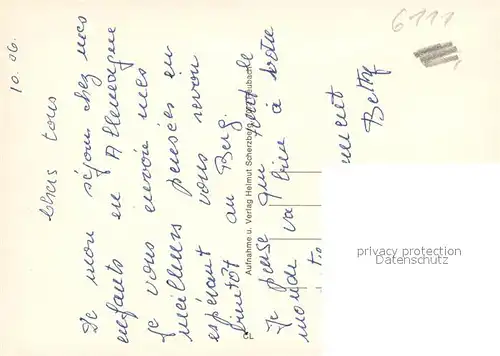 10.06.
Chers tous
De mon séjour chez mes
enfants en Allemagne
je vous envoie mes
meilleurs pensées en
espérant vous revoir
bientôt au Berg.
Je pense que tout le
monde va bien à
Betty
6111
Aufnahme u. Verlag Helmut Scherzberg
privacy protection
Datenschutz